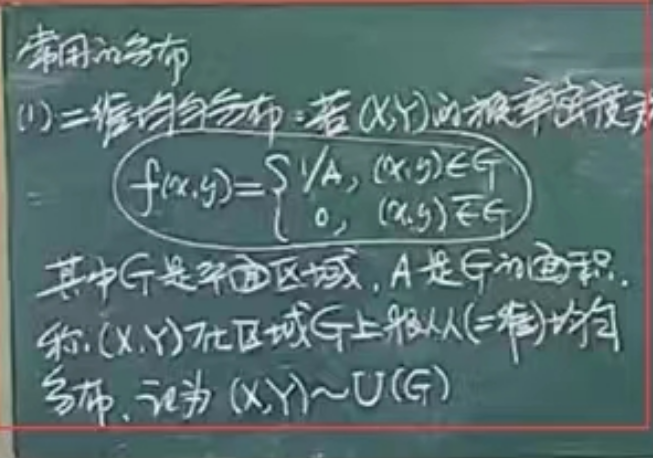 常用的分布
(1)二维均匀分布:若(X,Y)的概率密度为
f(x,y)={1/A, (x,y)∈G
0, (x,y)∈̅G
其中G是平面区域,A是G的面积,
称(X,Y)在区域G上服从(二维)均匀
分布,记为(X,Y)~U(G)